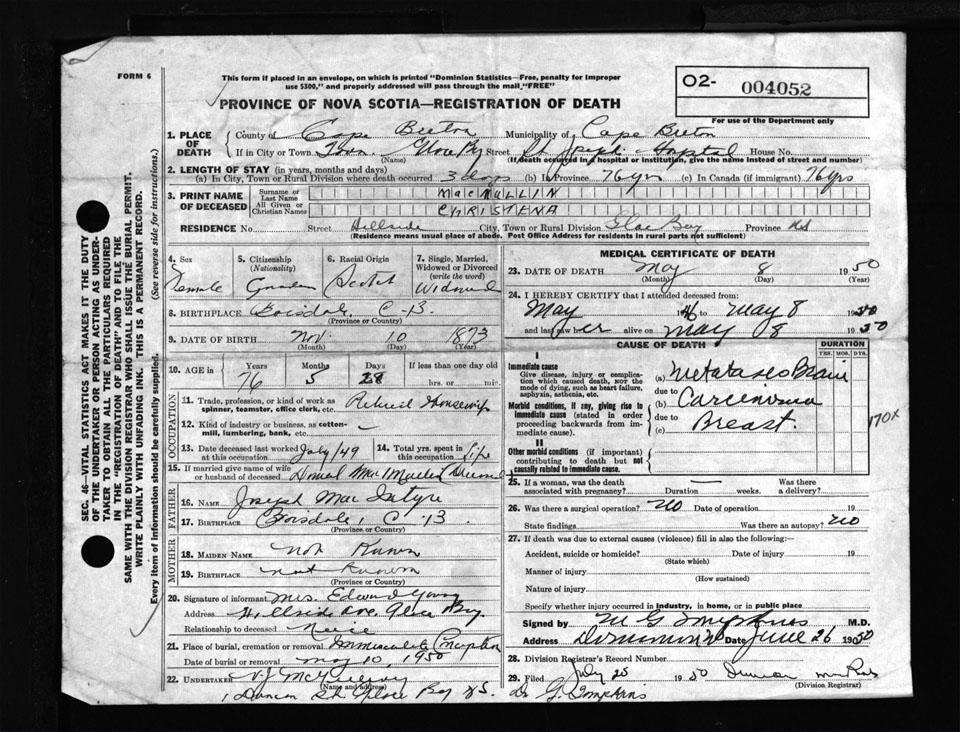 FORM 6
This form if placed in an envelope, on which is printed "Dominion Statistics—Free, penalty for improper
use $300," and properly addressed will pass through the mail "FREE"
PROVINCE OF NOVA SCOTIA—REGISTRATION OF DEATH
O2- 004052
For use of the Department only
SEC. 46—VITAL STATISTICS ACT MAKES IT THE DUTY
OF THE UNDERTAKER OR PERSON ACTING AS UNDER-
TAKER TO OBTAIN ALL THE PARTICULARS REQUIRED
IN THE "REGISTRATION OF DEATH" AND TO FILE THE
SAME WITH THE DIVISION REGISTRAR WHO SHALL ISSUE THE BURIAL PERMIT.
WRITE PLAINLY WITH UNFADING INK. THIS IS A PERMANENT RECORD.
Every item of information should be carefully supplied. (See reverse side for instructions.)
1. PLACE OF DEATH
County of Cape Breton Municipality of Cape Breton
If in City or Town Town Glace Bay Street St Joseph Hospital House No.
(Name) (If death occurred in a hospital or institution, give the name instead of street and number)
2. LENGTH OF STAY (in years, months and days)
(a) In City, Town or Rural Division where death occurred 3 days (b) In Province 76 yrs (c) In Canada (if immigrant) 76 yrs
3. PRINT NAME OF DECEASED
Surname or Last Name MacMULLIN
All Given or Christian Names CHRISTENA
RESIDENCE No. Street Hillside City, Town or Rural Division Glace Bay Province NS
(Residence means usual place of abode. Post Office Address for residents in rural parts not sufficient)
4. Sex Female
5. Citizenship (Nationality) Canadian
6. Racial Origin Scotch
7. Single, Married, Widowed or Divorced (write the word) Widowed
8. BIRTHPLACE Boisdale, C-B.
(Province or Country)
9. DATE OF BIRTH Nov. 10 1873
(Month) (Day) (Year)
10. AGE in Years 76 Months 5 Days 28 If less than one day old
hrs. or min.
OCCUPATION
11. Trade, profession, or kind of work as
spinner, teamster, office clerk, etc. Retired Housewife
12. Kind of industry or business, as cotton-
mill, lumbering, bank, etc. —
13. Date deceased last worked at this occupation July/49
14. Total yrs. spent in this occupation life
15. If married give name of wife
or husband of deceased Donal MacMullin Deceased
FATHER
16. NAME Joseph MacIntyre
17. BIRTHPLACE Boisdale, C-B.
(Province or Country)
MOTHER
18. MAIDEN NAME not Known
19. BIRTHPLACE not Known
(Province or Country)
20. Signature of informant Mrs. Edward Young
Address Hillside Ave, Glace Bay
Relationship to deceased Neice
21. Place of burial, cremation or removal Immaculate Conception
Date of burial or removal May 10, 1950
22. UNDERTAKER V.J. McGillivray
(Name and address)
Duncan St. Glace Bay NS.
MEDICAL CERTIFICATE OF DEATH
23. DATE OF DEATH May 8 1950
(Month) (Day) (Year)
24. I HEREBY CERTIFY that I attended deceased from:
May to May 8 1950
and last saw her alive on May 8 1950
CAUSE OF DEATH
DURATION
YRS. MOS. DYS.
I
Immediate cause
Give disease, injury or complica-
tion which caused death, not the
mode of dying, such as heart failure,
asphyxia, asthenia, etc.
(a) Metatases Brain
due to
Morbid conditions, if any, giving rise to
immediate cause (stated in order
proceeding backwards from im-
mediate cause).
(b) Carcinoma
due to
(c) Breast.
170X
II
Other morbid conditions (if important)
contributing to death but not
causally related to immediate cause.
25. If a woman, was the death
associated with pregnancy? Duration — Was there a delivery?
26. Was there a surgical operation? No Date of operation 19
State findings Was there an autopsy? No
27. If death was due to external causes (violence) fill in also the following:
Accident, suicide or homicide? Date of injury 19
(State which)
Manner of injury
(How sustained)
Nature of injury
Specify whether injury occurred in Industry, in home, or in public place
Signed by M G Tompkins M.D.
Address Dominion Date June 26 1950
28. Division Registrar's Record Number
29. Filed July 25 1950 Duncan
(Division Registrar)
Dr G. Tompkins